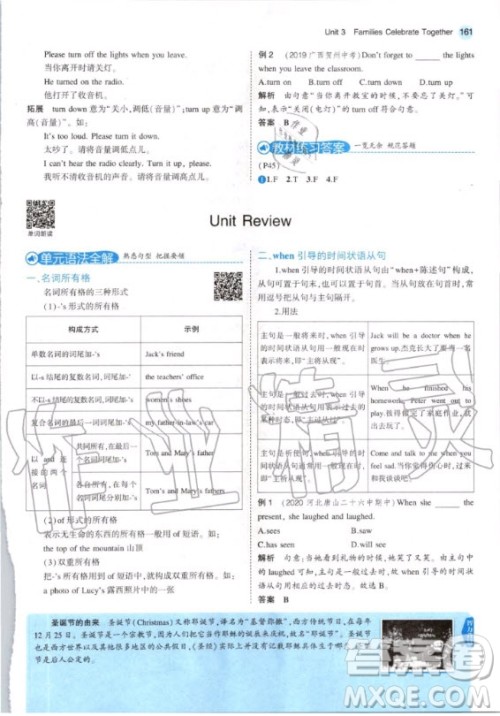 Unit 3 Families Celebrate Together 161
Please turn off the lights when you leave.
当你离开时请关灯。
He turned on the radio.
他打开了收音机。
拓展 turn down 意为“关小,调低(音量)”;turn up 意为“调
高(音量)”。如:
It's too loud. Please turn down a little.
太吵了。请稍微调低点儿。
I can't hear the radio clearly. Turn it up, please.
我听不清收音机了。请稍微调高点儿。
例 2 (2019 广西贺州中考) Don't forget to ____ the lights
when you leave the classroom.
A.turn on B.turn off C.turn down
解析 由句意“当你离开教室的时候,不要忘了关灯。”可
知,表示“关闭(电灯)”的 turn off 符合句意。
答案 B
教材练习答案 一览无余 规范答题
(P45)
1 1.F 2.T 3.F 4.F
单词朗读
Unit Review
单元语法全解 熟悉句型 把握要领
一、名词所有格
名词所有格的三种形式
(1)-'s 形式的所有格
构成方式 示例
单数名词的词尾加-'s Jack's friend
以-s 结尾的复数名词,词尾加-' the teachers' office
不以-s 结尾的复数名词,词尾加-'s women's shoes
复合名词的词尾加-'s my father-in-law's car
共同所有,在最后一个词的词尾加-'s Tom and Mary's father
各自所有,在每个词的词尾加-'s Tom's and Mary's fathers
(2)of 形式的所有格
表示无生命的东西的所有格一般用 of 短语。如:
the top of the mountain 山顶
(3)双重所有格
把-'s 所有格和 of 短语结合在一起使用。如:
a photo of Lucy's 露西照片中的一张
二、when 引导的时间状语从句
1.when 引导的时间状语从句由“when+陈述句”构成,
从句可置于句末,也可以置于句首。当从句放在句首时,
一般用逗号把从句与主句隔开。
2.用法
主句是一般将来时,when 引导的时间状语从句用一般现在时表示将来,即“主将从现”。
Jack will be a doctor when he grows up.杰克长大了要当一名医生。
When he finished his homework, Peter went out to play.
Come and talk to me when you feel sad.当你感到悲伤时来和我谈谈。
例 1 (2020 河北唐山二十六中期中) When she ____ the
present, she laughed and laughed.
A.sees B.saw
C.has seen D.will see
答案 B
圣诞节的由来 圣诞节(Christmas)又称耶诞节,译名为“基督弥撒”,西方传统节日,在每年
12 月 25 日。圣诞节是一个宗教节,因为人们把它当作耶稣的诞辰来庆祝,故名“耶诞节”。圣诞节是
西方世界以及其他很多地区的公共假日。《圣经》实际上并没有记载耶稣诞生日期,圣诞
节是后人公定的。
作业精灵
答案圈
MXQE.COM